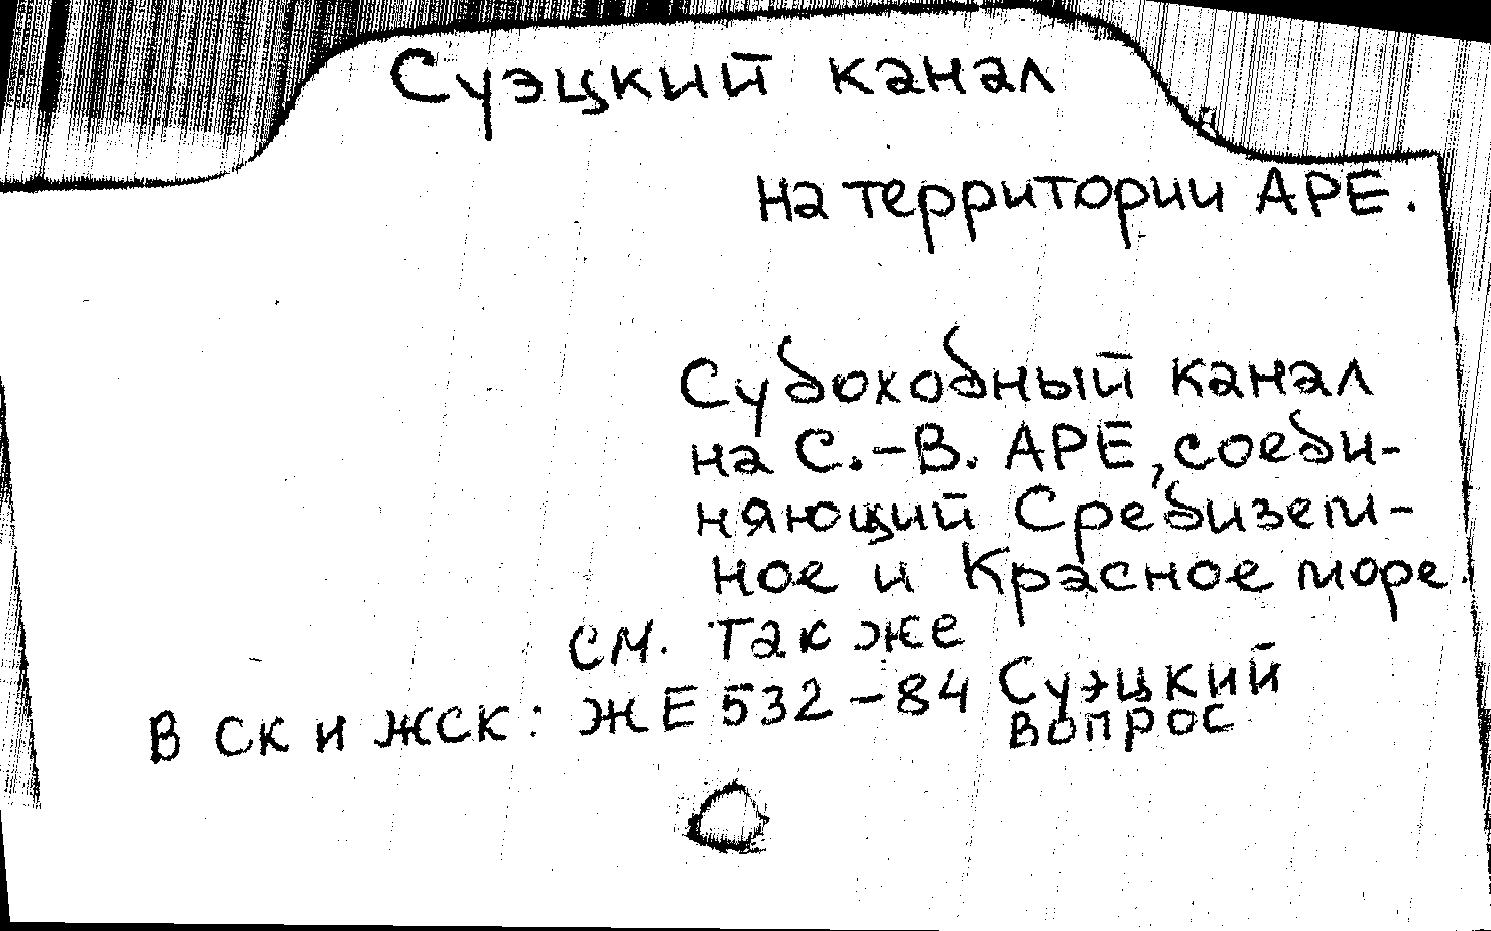 Суэцкий канал
на территории АРЕ.
Судоходный канал
на С.-В. АРЕ, соеди-
няющий Средизем-
ное и Красное море.
см. также
Суэцкий
В СК и ЖСК: ЖЕ 532-84
вопрос